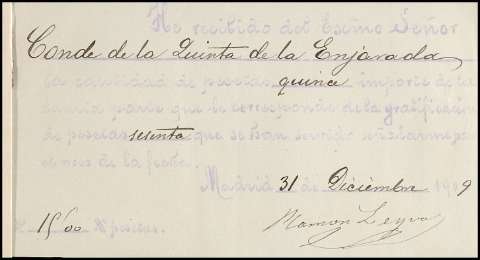 He recibido del Escmo Señor
Conde de la Quinta de la Enjarada
la cantidad de pesetas quince importe de la
cuarta parte que le corresponde de la gratificación
de pesetas sesenta que se han servido señalarme por
el mes de la fecha.
Madrid 31 de Diciembre 19 9
15'00 pesetas.
Ramon Leyva